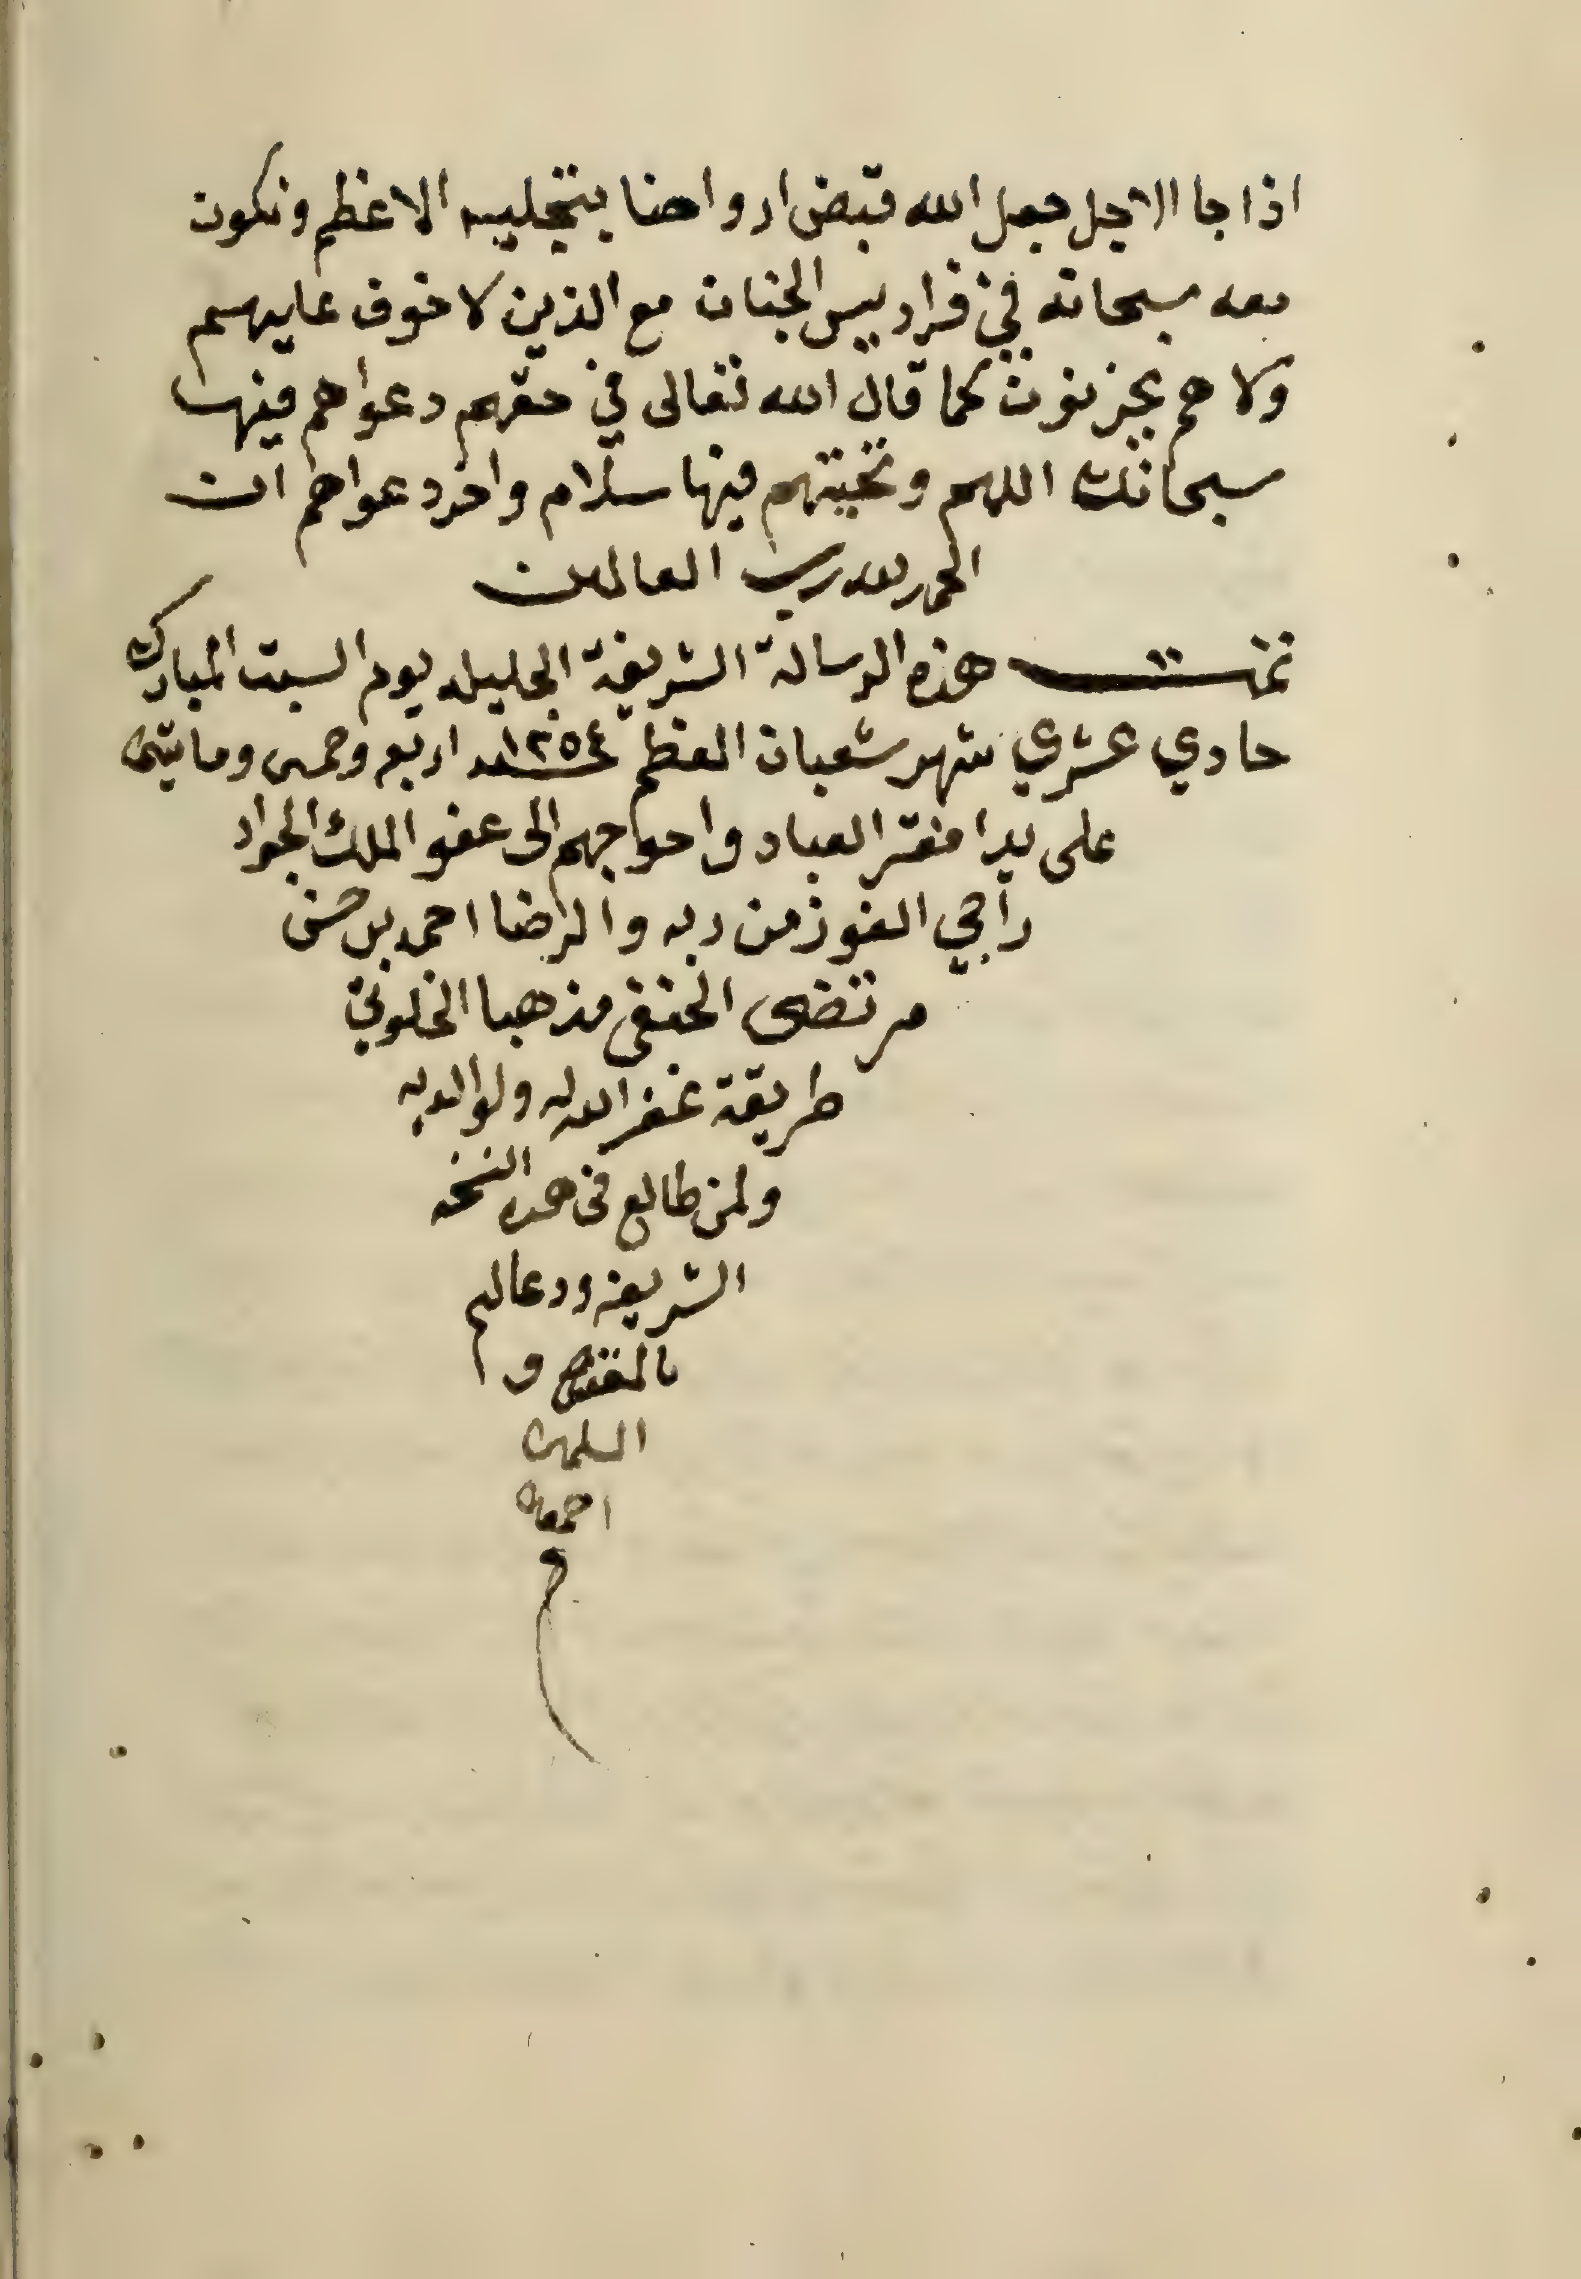 اذا جا الاجل جعل الله قبض ارواحنا بتجليه الاعظم ونكون
معه سبحانه في فراديس الجنان مع الذين لا خوف عليهم
ولا هم يحزنون كما قال الله تعالى في حقهم دعواهم فيها
سبحانك اللهم وتحيتهم فيها سلام واخر دعواهم ان
الحمد لله رب العالمين
تمت هذه الرسالة الشريفة الجليله يوم السبت المبارك
حادي عشري شهر شعبان المعظم سنة ١٢٥٤ اربع وخمسى ومايتىن
على يد افقر العباد واحوجهم الى عفو الملك الجواد
راجي الفوز من ربه والرضا احمد بن حسن
مرتضى الحنفي مذهبا الخلوتي
طريقة غفر الله له ولوالديه
ولمن طالع فى هده النسخه
الشريفه ودعا لهم
بالمغفره و
المسلمىن
اجمعىن
م